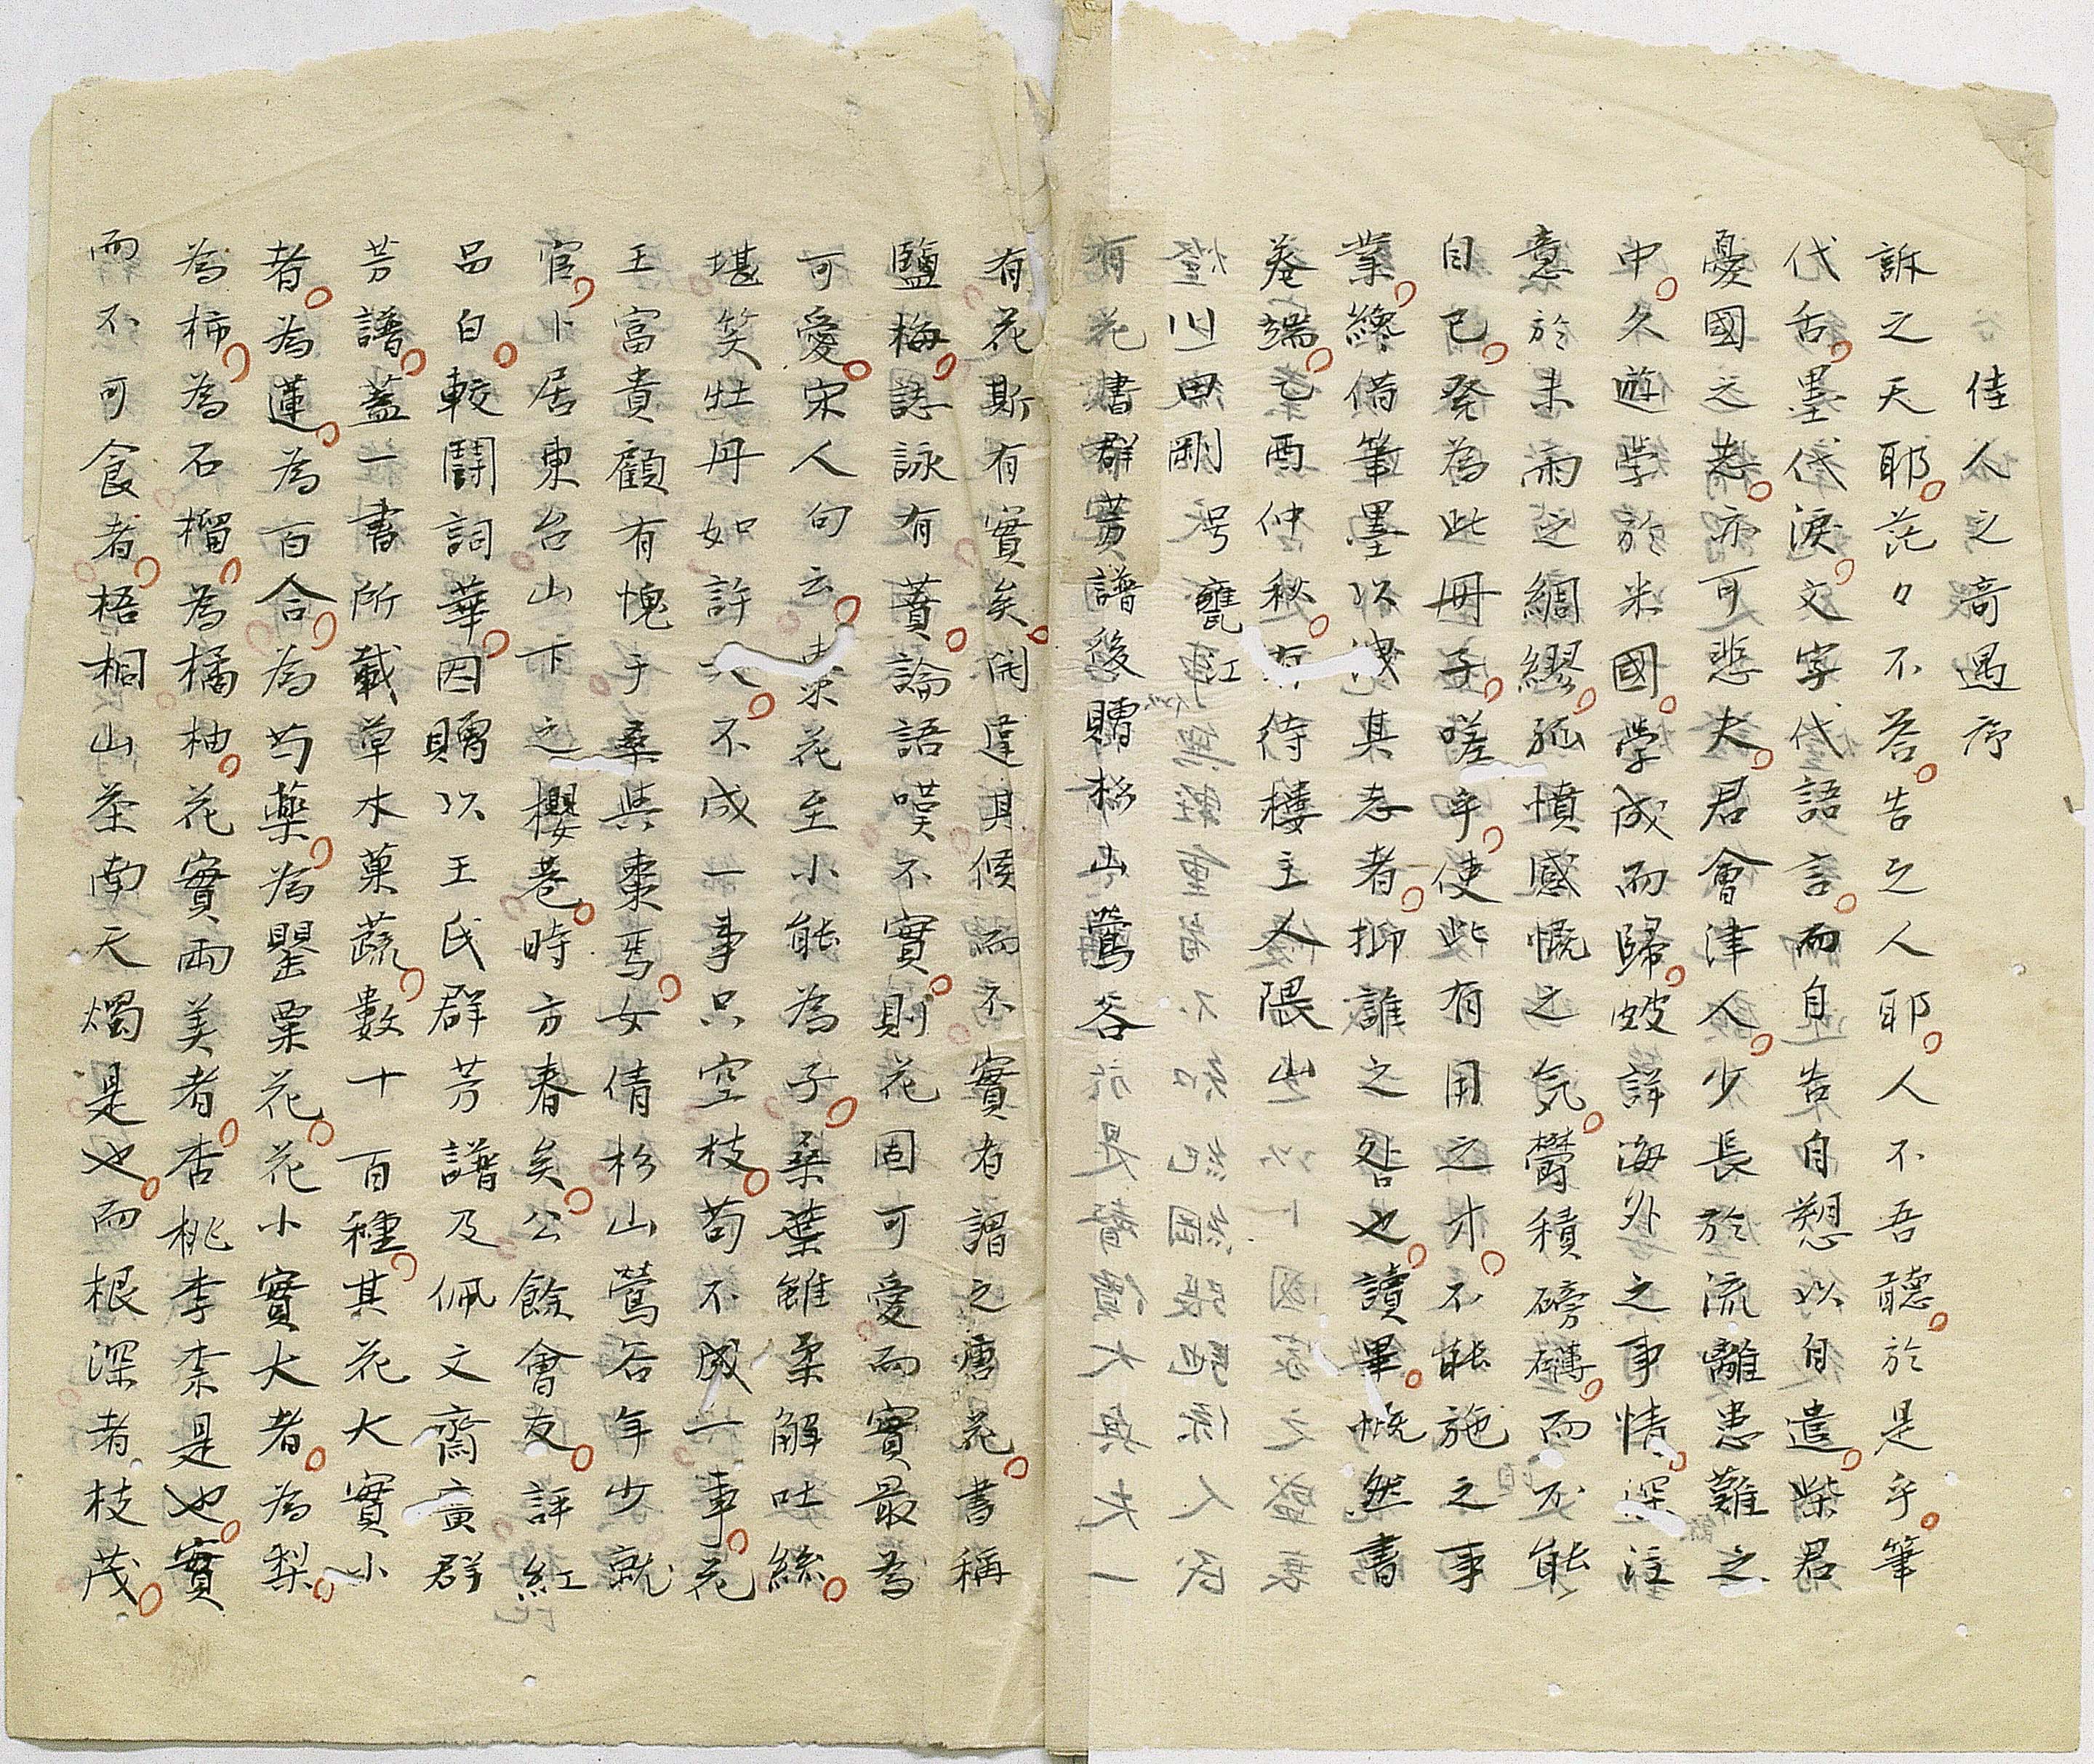 佳人之奇遇序
訴之天耶。茫々不答。告之人耶。人不吾聽。於是乎。筆
代舌。墨代淚。文字代語言。而自造自愬以自遣。柴君
憂國之志。亦可悲夫。君會津人。少長於流離患難之
中。久遊学於米國。学成而歸。故詳海外之事情。深注
意於未雨之綢繆。孤憤感慨之気。欝積磅礴。而不能
自已。発為此冊子。嗟乎。使此有用之才。不能施之事
業。纔借筆墨以洩其志者。抑誰之咎也。讀畢。慨然書
巻端。乙酉仲秋。有待樓主人隈山
澄川田剛号甕江
書群芳譜後贈松山鶯谷
有花斯有實矣。開違其候而不實者謂之唐花。書稱
鹽梅。誌詠有蕡。論語嘆不實。則花固可愛而實最為
可愛。宋人句云。棗花至小能為子。桑葉雖柔解吐絲。
堪笑牡丹如許大。不成一事只空枝。苟不成一事。花
王富貴顧有愧于桑與棗焉。女倩松山鶯谷年少就
官。卜居東台山下之櫻巷。時方春矣。公餘會友。評紅
品白。較鬪詞華。因贈以王氏群芳譜及佩文齋廣群
芳譜。蓋一書所載草木菓蔬。數十百種。其花大實小
者。為蓮。為百合。為芍藥。為罌粟花。花小實大者。為梨。
為柿。為石榴。為橘柚。花實両美者。杏桃李柰是也。實
而不可食者。梧桐山茶南天燭是也。而根深者枝茂。